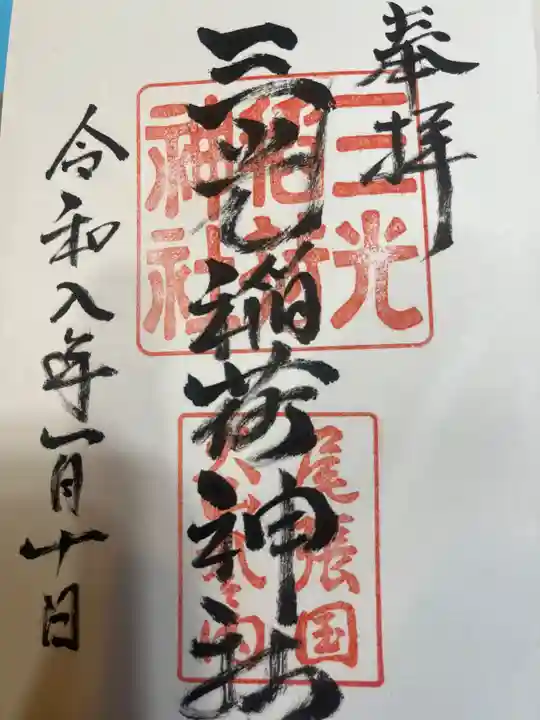 奉拝
三光稲荷神社
三光
稲荷
神社
尾張国
犬山城内
令和八年一月十日